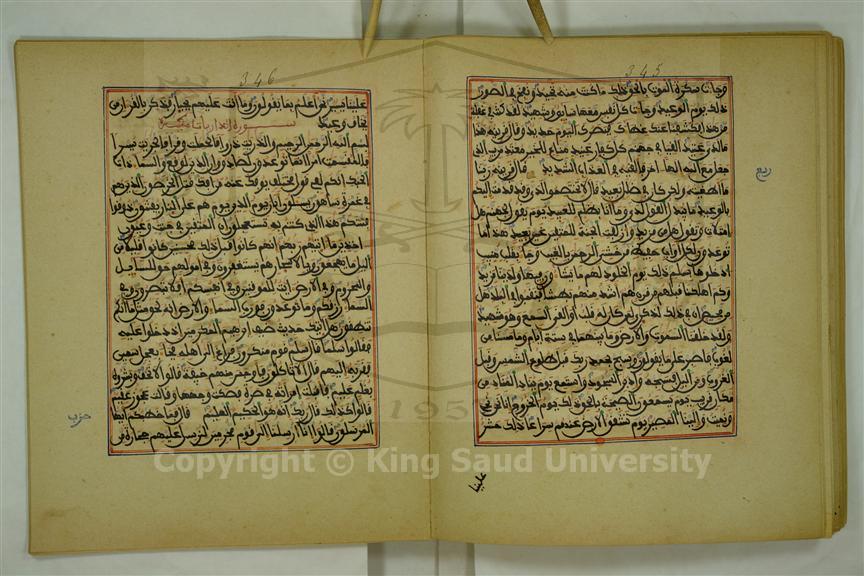 345
وجات سكرة الموت بالحق ذلك ما كنت منه تحيد ونفخ في الصور
ذلك يوم الوعيد وجات كل نفس معها سايق وشهيد لقد كنت في غفلة
من هذا فكشفنا عنك غطاك فبصرك اليوم حديد وقال قرينه هذا
ما لدي عتيد القيا في جهنم كل كفار عنيد مناع للخير معتد مريب الذي
جعل مع الله الها اخر فالقيه في العذاب الشديد قال قرينه ربنا
ربع
ما اطغيته ولكن كان في ضلل بعيد قال لا تختصموا لدي وقد قدمت اليكم
بالوعيد ما يبدل القول لدي وما انا بظلم للعبيد يوم يقول لجهنم هل
امتلات وتقول هل من مزيد وازلفت الجنة للمتقين غير بعيد هذا ما
توعدون لكل اواب حفيظ من خشي الرحمن بالغيب وجا بقلب منيب
ادخلوها بسلم ذلك يوم الخلود لهم ما يشاون فيها ولدينا مزيد
وكم اهلكنا قبلهم من قرن هم اشد منهم بطشا فنقبوا في البلد هل
من محيص ان في ذلك لذكرى لمن كان له قلب او القى السمع وهو شهيد
ولقد خلقنا السموت والارض وما بينهما في ستة ايام وما مسنا من
لغوب فاصبر على ما يقولون وسبح بحمد ربك قبل طلوع الشمس وقبل
الغروب ومن اليل فسبحه وادبر السجود واستمع يوم يناد المناد من
مكان قريب يوم يسمعون الصيحة بالحق ذلك يوم الخروج انا نحن نحي
ونميت والينا المصير يوم تشقق الارض عنهم سراعا ذلك حشر
علينا
346
علينا يسير نحن اعلم بما يقولون وما انت عليهم بجبار فذكر بالقران من
يخاف وعيد سورة الذاريات مكية
بسم الله الرحمن الرحيم والذريت ذروا فالحملت وقرا فالجريت يسرا
فالمقسمت امرا انما توعدون لصادق وان الدين لوقع والسما ذات
الحبك انكم لفي قول مختلف يوفك عنه من افك قتل الخرصون الذين هم
في غمرة ساهون يسلون ايان يوم الدين يوم هم على النار يفتنون ذوقوا
فتنتكم هذا الذي كنتم به تستعجلون ان المتقين في جنت وعيون
اخذين ما اتيهم ربهم انهم كانوا قبل ذلك محسنين كانوا قليلا من
اليل ما يهجعون وبالاسحار هم يستغفرون وفي امولهم حق للسايل
والمحروم وفي الارض ايت للموقنين وفي انفسكم افلا تبصرون وفي
السما رزقكم وما توعدون فورب السما والارض انه لحق مثل ما انكم
تنطقون هل اتيك حديث ضيف ابرهيم المكرمين اذ دخلوا عليه
فقالوا سلما قال سلم قوم منكرون فراغ الى اهله فجا بعجل سمين
فقربه اليهم قال الا تاكلون فاوجس منهم خيفة قالوا لا تخف وبشروه
بغلم عليم فاقبلت امراته في صرة فصكت وجهها وقالت عجوز عقيم
قالوا كذلك قال ربك انه هو الحكيم العليم قال فما خطبكم ايها
حزب
المرسلون قالوا انا ارسلنا الى قوم مجرمين لنرسل عليهم حجارة من
Copyright © King Saud University
195